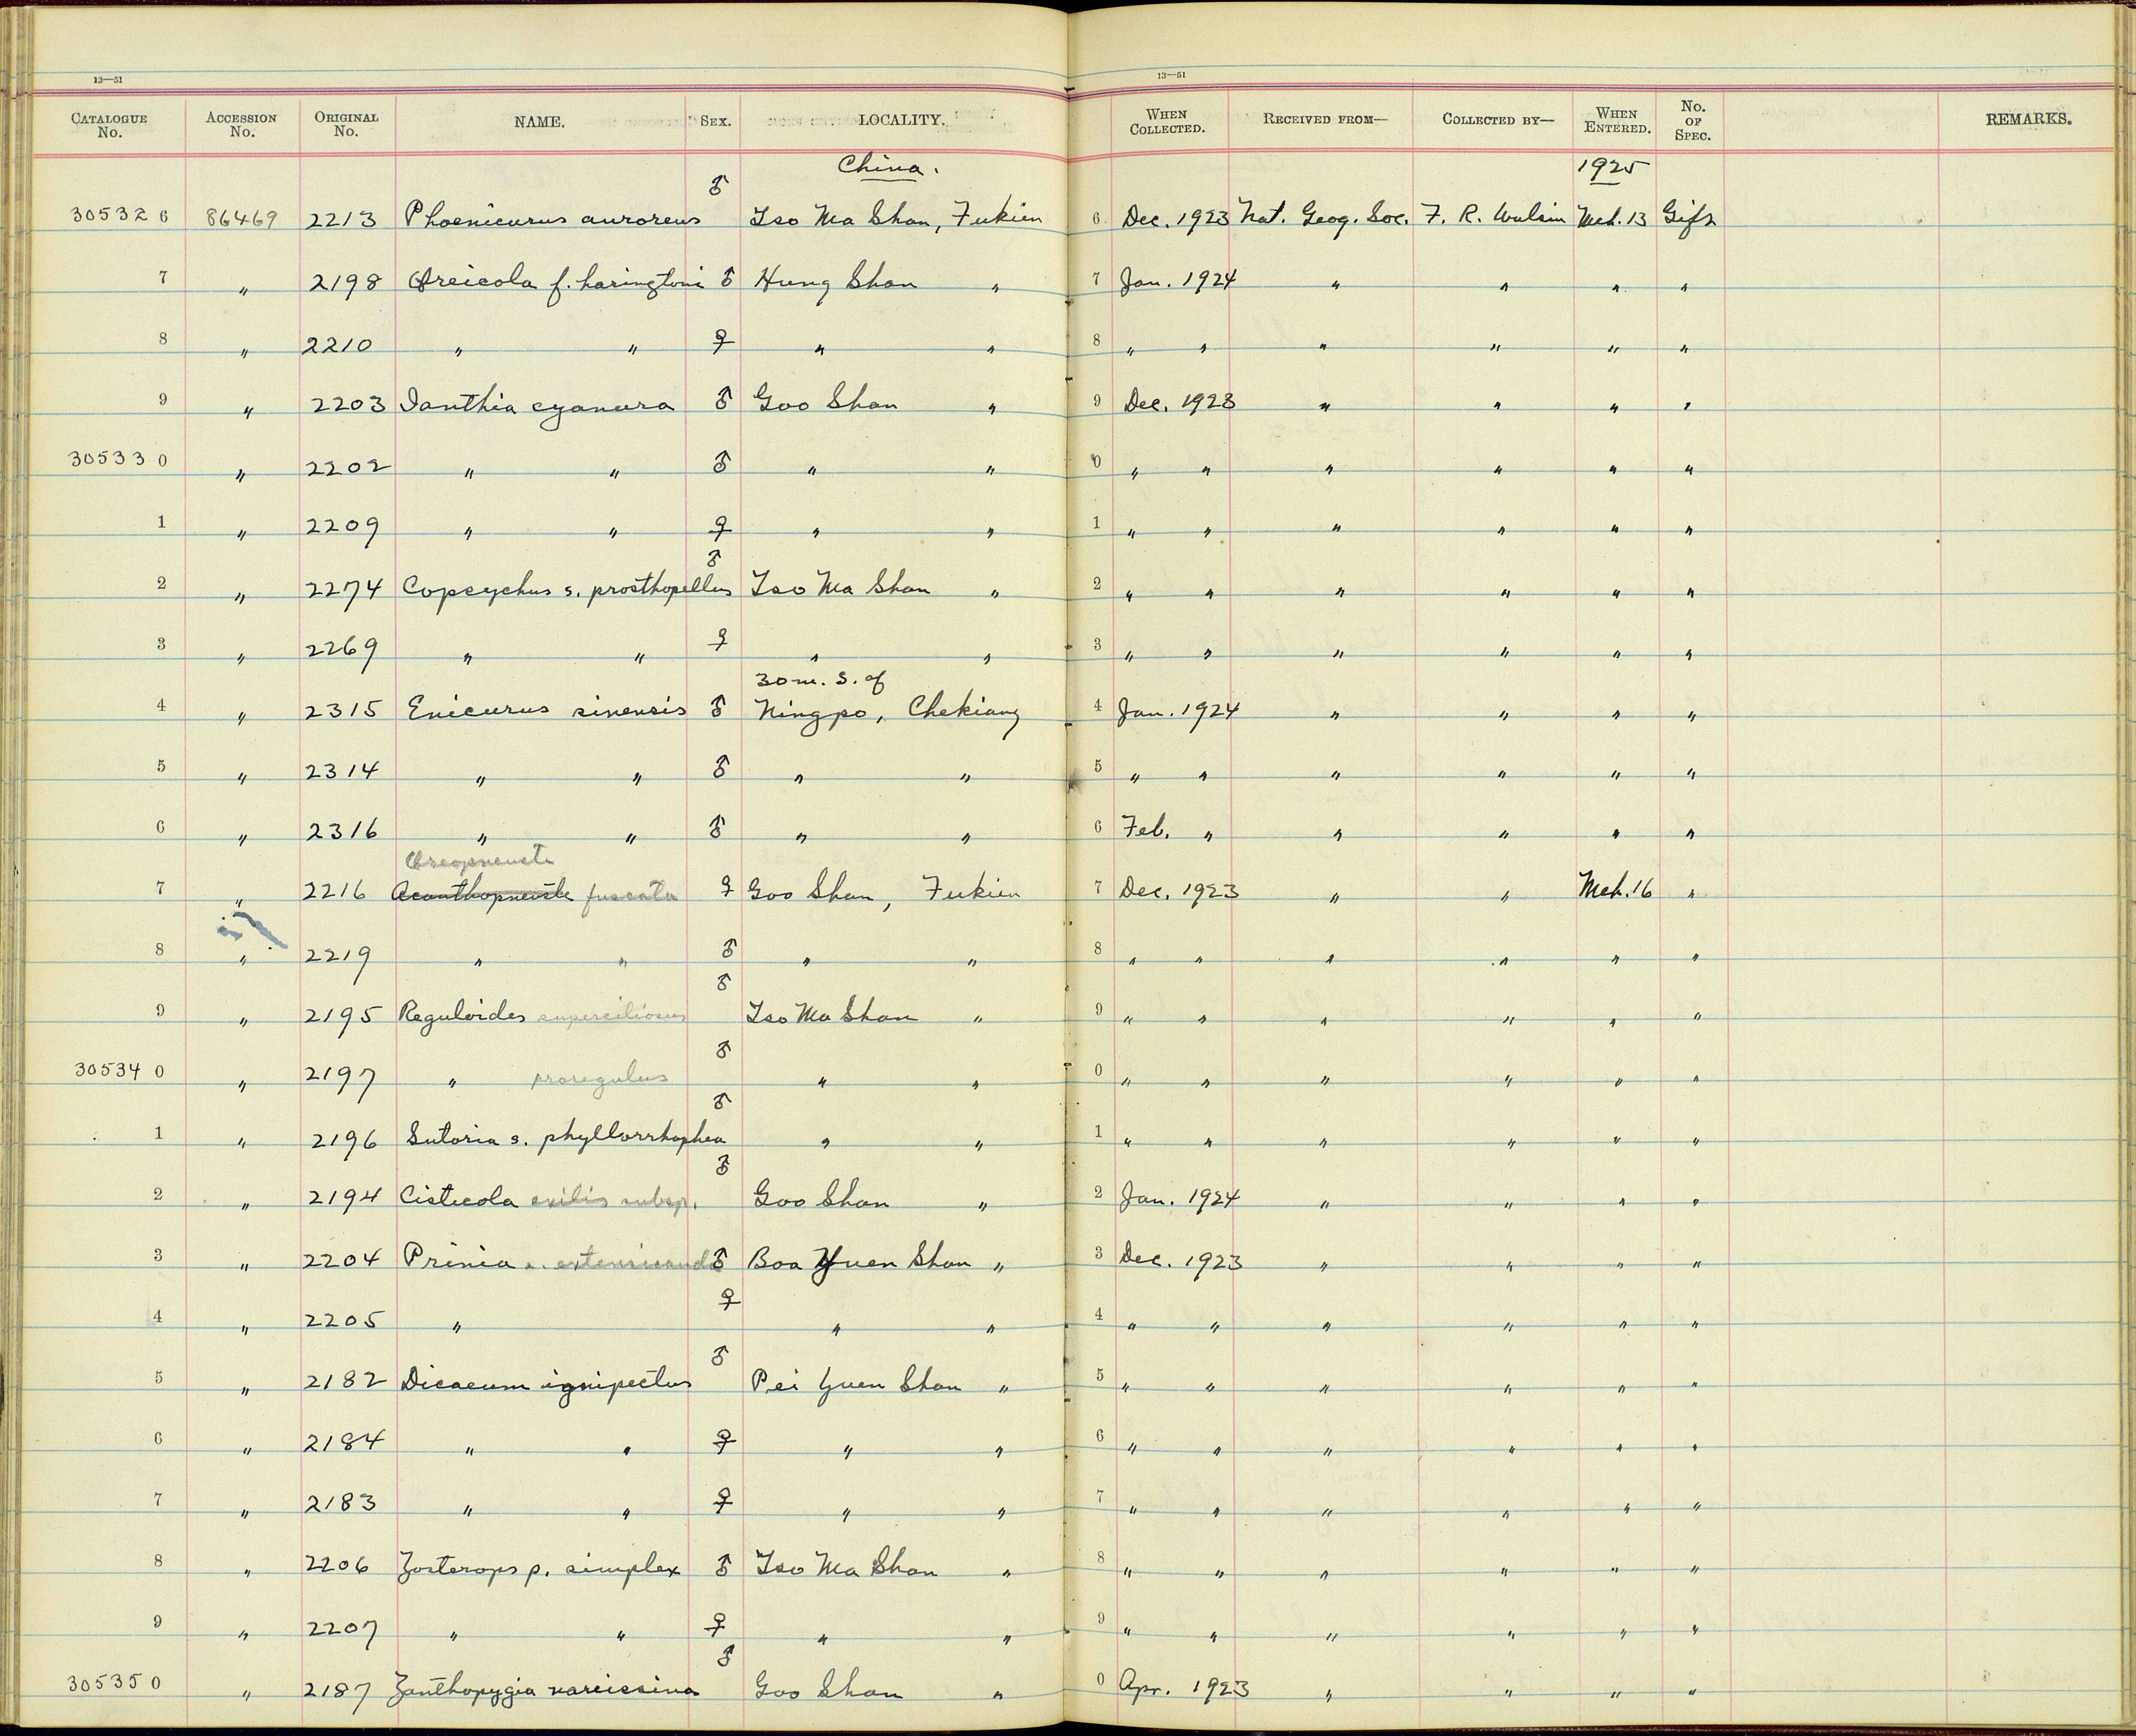 13—51
13—51
CATALOGUE No. ACCESSION No. ORIGINAL No. NAME. SEX. LOCALITY. WHEN COLLECTED. RECEIVED FROM— COLLECTED BY— WHEN ENTERED. No. OF SPEC. REMARKS.
China. 1925
305326 86469 2213 Phoenicurus auroreus ♂ Tso Ma Shan, Fukien 6 Dec. 1923 Nat. Geog. Soc. F. R. Wulsin Mch. 13 Gift
7 " 2198 Oreicola f. haringtoni ♂ Hung Shan " 7 Jan. 1924 " " " "
8 " 2210 " " ♀ " " 8 " " " " " "
9 " 2203 Ianthia cyanura ♂ Goo Shan " 9 Dec. 1923 " " " "
305330 " 2202 " " ♂ " " 0 " " " " " "
1 " 2209 " " ♀ " " 1 " " " " " "
2 " 2274 Copsychus s. prosthopellus ♂ Tso Ma Shan " 2 " " " " " "
3 " 2269 " " ♀ " " 3 " " " " " "
30 m. S. of
4 " 2315 Enicurus sinensis ♂ Ningpo, Chekiang 4 Jan. 1924 " " " "
5 " 2314 " " ♂ " " 5 " " " " " "
6 " 2316 " " ♂ " " 6 Feb. " " " " "
Oreopneuste
7 " 2216 Acanthopneuste fuscata ♀ Goo Shan, Fukien 7 Dec. 1923 " " Mch. 16 "
8 " 2219 " " ♂ " " 8 " " " " " "
9 " 2195 Reguloides superciliosus ♂ Tso Ma Shan " 9 " " " " " "
305340 " 2197 " proregulus ♂ " " 0 " " " " " "
1 " 2196 Sutoria s. phyllorrhaphea ♂ " " 1 " " " " " "
2 " 2194 Cisticola exilis subsp. ♂ Goo Shan " 2 Jan. 1924 " " " "
3 " 2204 Prinia ♂ Boa Yuen Shan " 3 Dec. 1923 " " " "
4 " 2205 " ♀ " " 4 " " " " " "
5 " 2182 Dicaeum ignipectus ♂ Pei Yuen Shan " 5 " " " " " "
6 " 2184 " " ♀ " " 6 " " " " " "
7 " 2183 " " ♀ " " 7 " " " " " "
8 " 2206 Zosterops p. simplex ♂ Tso Ma Shan " 8 " " " " " "
9 " 2207 " " ♀ " " 9 " " " " " "
305350 " 2187 Zanthopygia narcissina ♂ Goo Shan " 0 Apr. 1923 " " " "